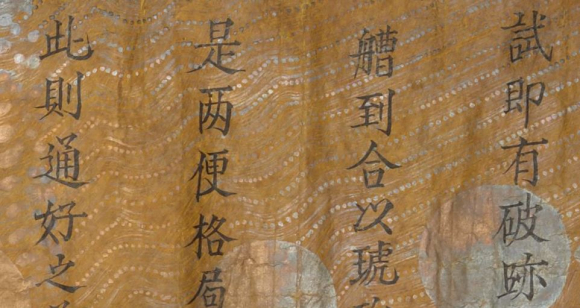 試即有破跡
艚到合以琥
是两便格局
此則通好之